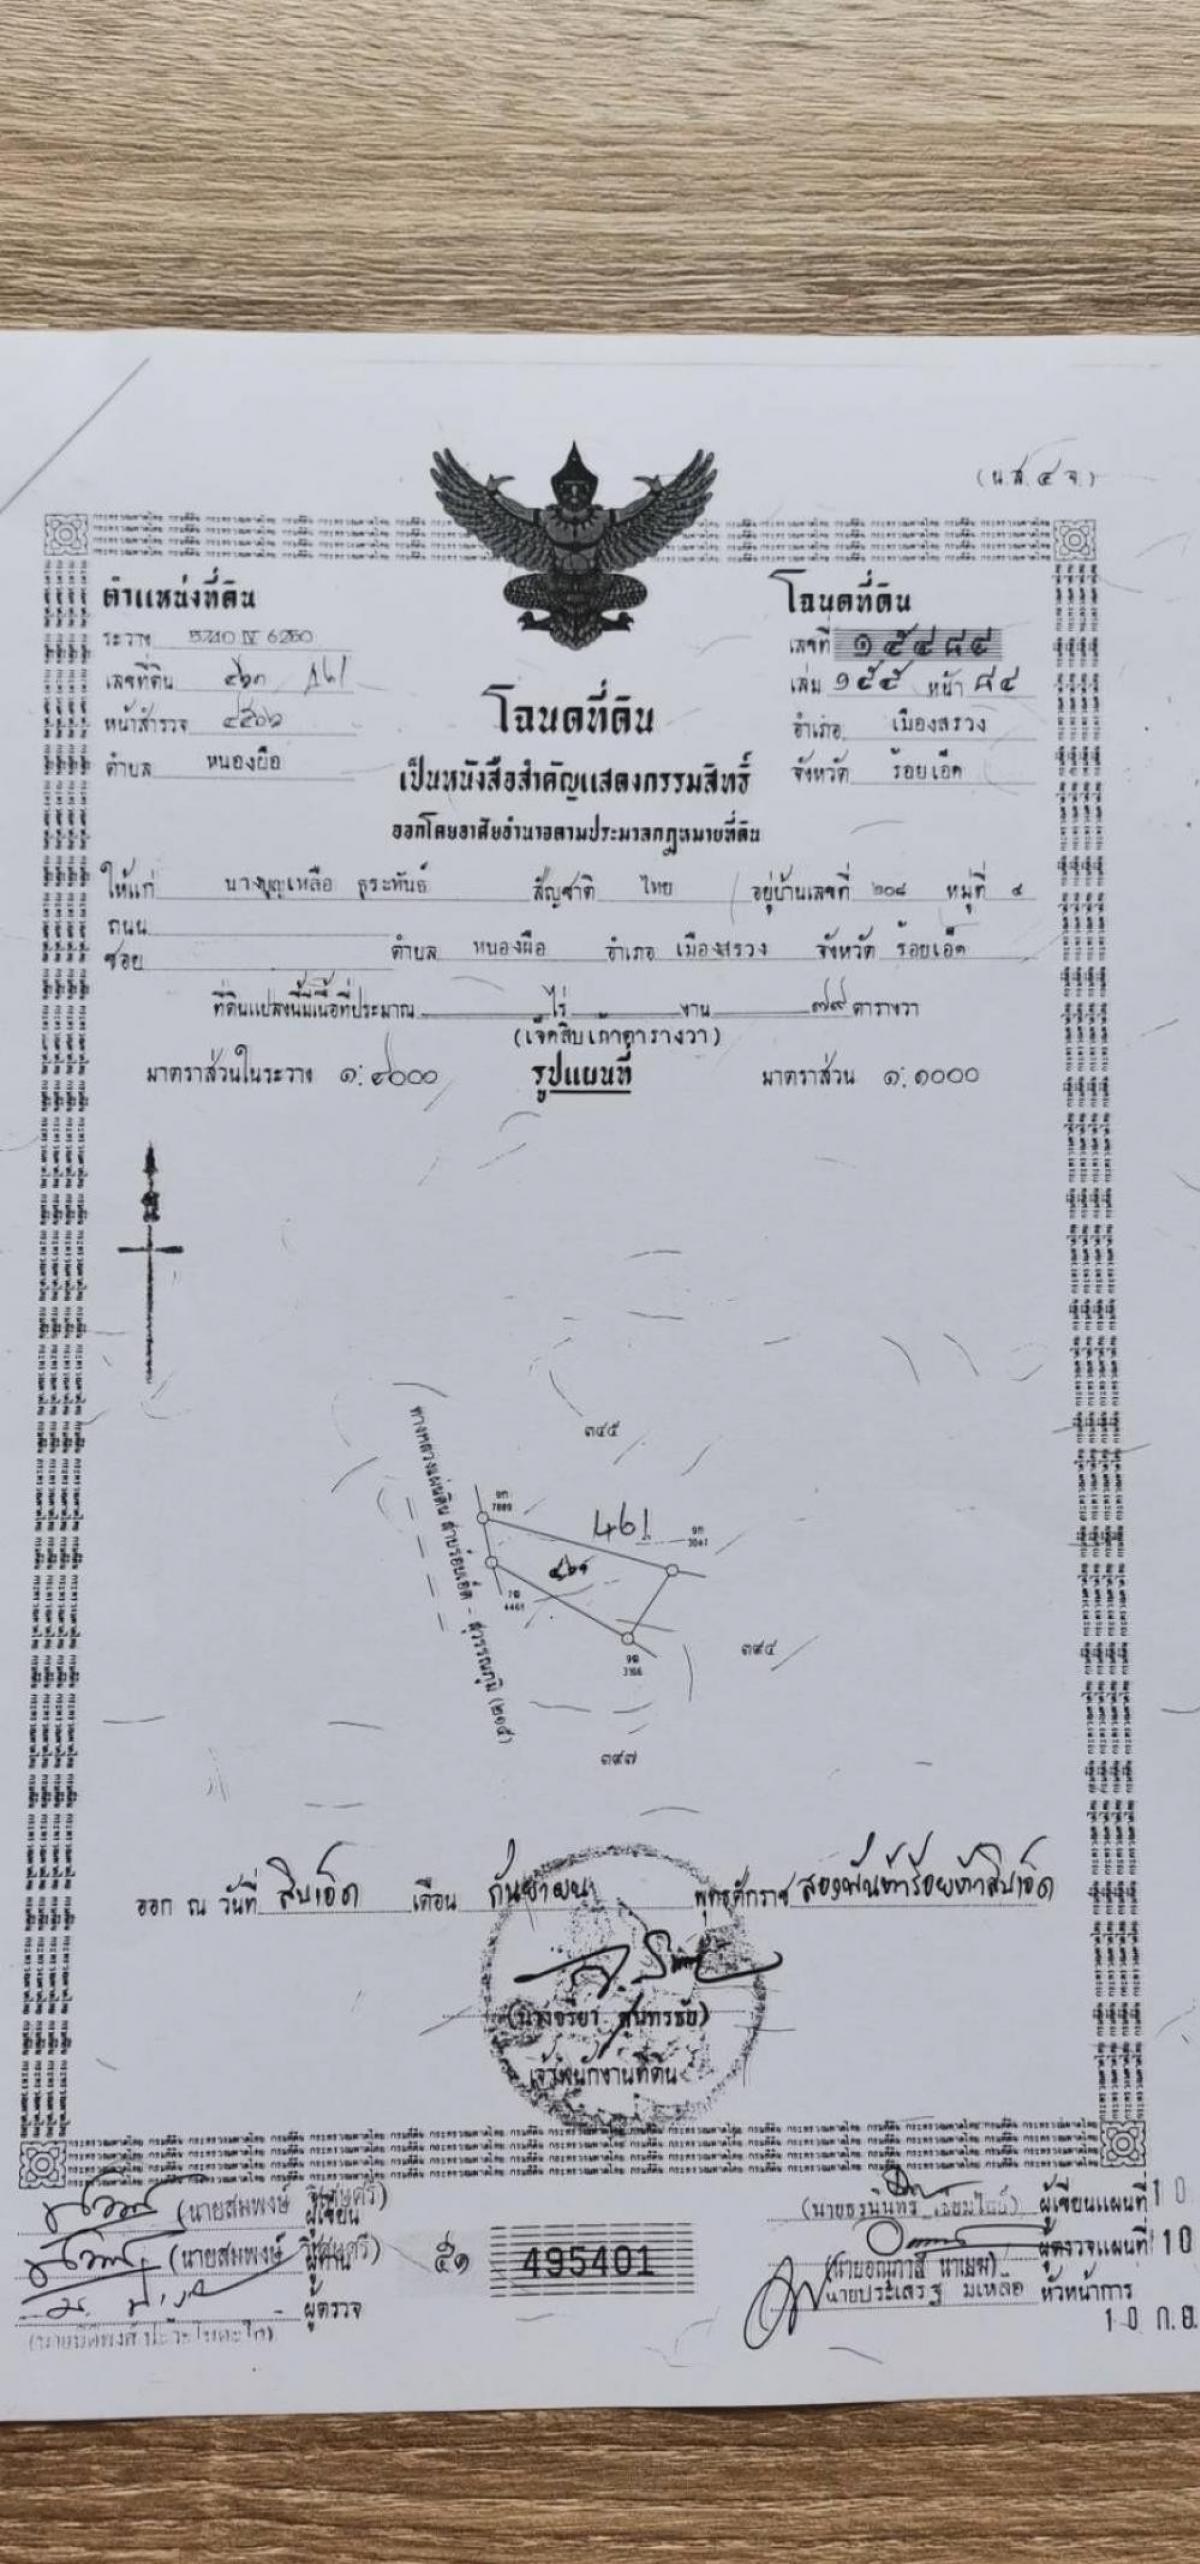 (น.ส. ๔ จ.)
ตำแหน่งที่ดิน
ระวาง 5740 IV 6260
เลขที่ดิน
หน้าสำรวจ
ตำบล หนองผือ
โฉนดที่ดิน
เลขที่
เล่ม ๑๕๕ หน้า ๘๔
อำเภอ เมืองสรวง
จังหวัด ร้อยเอ็ด
โฉนดที่ดิน
เป็นหนังสือสำคัญแสดงกรรมสิทธิ์
ออกโดยอาศัยอำนาจตามประมวลกฎหมายที่ดิน
ให้แก่ นางบุญเหลือ ธุระพันธ์ สัญชาติ ไทย อยู่บ้านเลขที่ ๒๐๘ หมู่ที่ ๔
ถนน
ซอย ตำบล หนองผือ อำเภอ เมืองสรวง จังหวัด ร้อยเอ็ด
ที่ดินแปลงนี้มีเนื้อที่ประมาณ ไร่ งาน ๗๙ ตารางวา
(เจ็ดสิบเก้าตารางวา)
มาตราส่วนในระวาง ๑:๔๐๐๐ รูปแผนที่ มาตราส่วน ๑:๑๐๐๐
๓๔๕
ทางหลวงแผ่นดิน สายร้อยเอ็ด - สุวรรณภูมิ (๒๑๕)
7889
461
4461
๓๙๔
๓๙๗
ออก ณ วันที่ สิบเอ็ด เดือน กันยายน พุทธศักราช สองพันห้าร้อยห้าสิบเอ็ด
เจ้าพนักงานที่ดิน
(นายสมพงษ์ ผู้เขียน
(นายสมพงษ์ ผู้ทาน
ผู้ตรวจ
๕๑ 495401
ผู้เขียนแผนที่ 10
ผู้ตรวจแผนที่ 10
นายประเสริฐ มีเหลือ หัวหน้าการ
10 ก.ย.